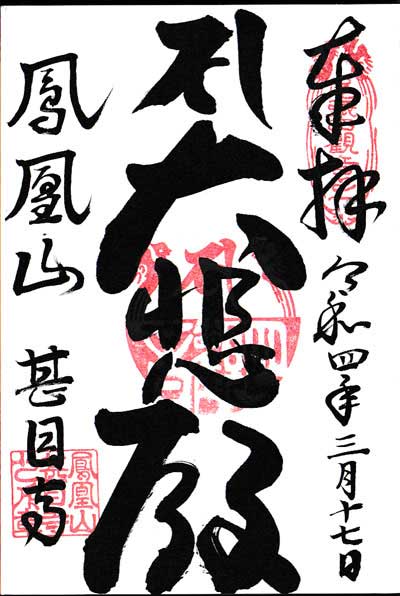 奉拝 令和四年三月十七日
大悲殿
鳳凰山 甚目寺
鳳凰山